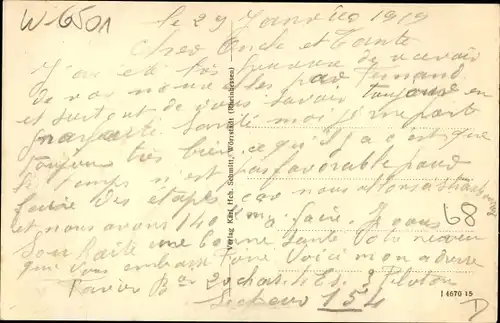 W-6501
le 29 Janvier 1919
Cher Oncle et Tante
J'ai été très heureux de recevoir
de vos nouvelles par Fernand
et surtout de vous savoir toujours en
parfaite santé moi je me porte
toujours très bien ce qu'il y a c'est que
le temps n'est pas favorable pour
faire des étapes car nous allons a Strasbourg
et nous avons 140 Km a faire. Je vous
68
une bonne santé Votre neveu
que vous embrasse Voici mon adresse
2e 3 Peloton
Secteur 154
D
Verlag Karl Hch. Schmitt, Wörrstadt (Rheinhessen)
I 4670 15